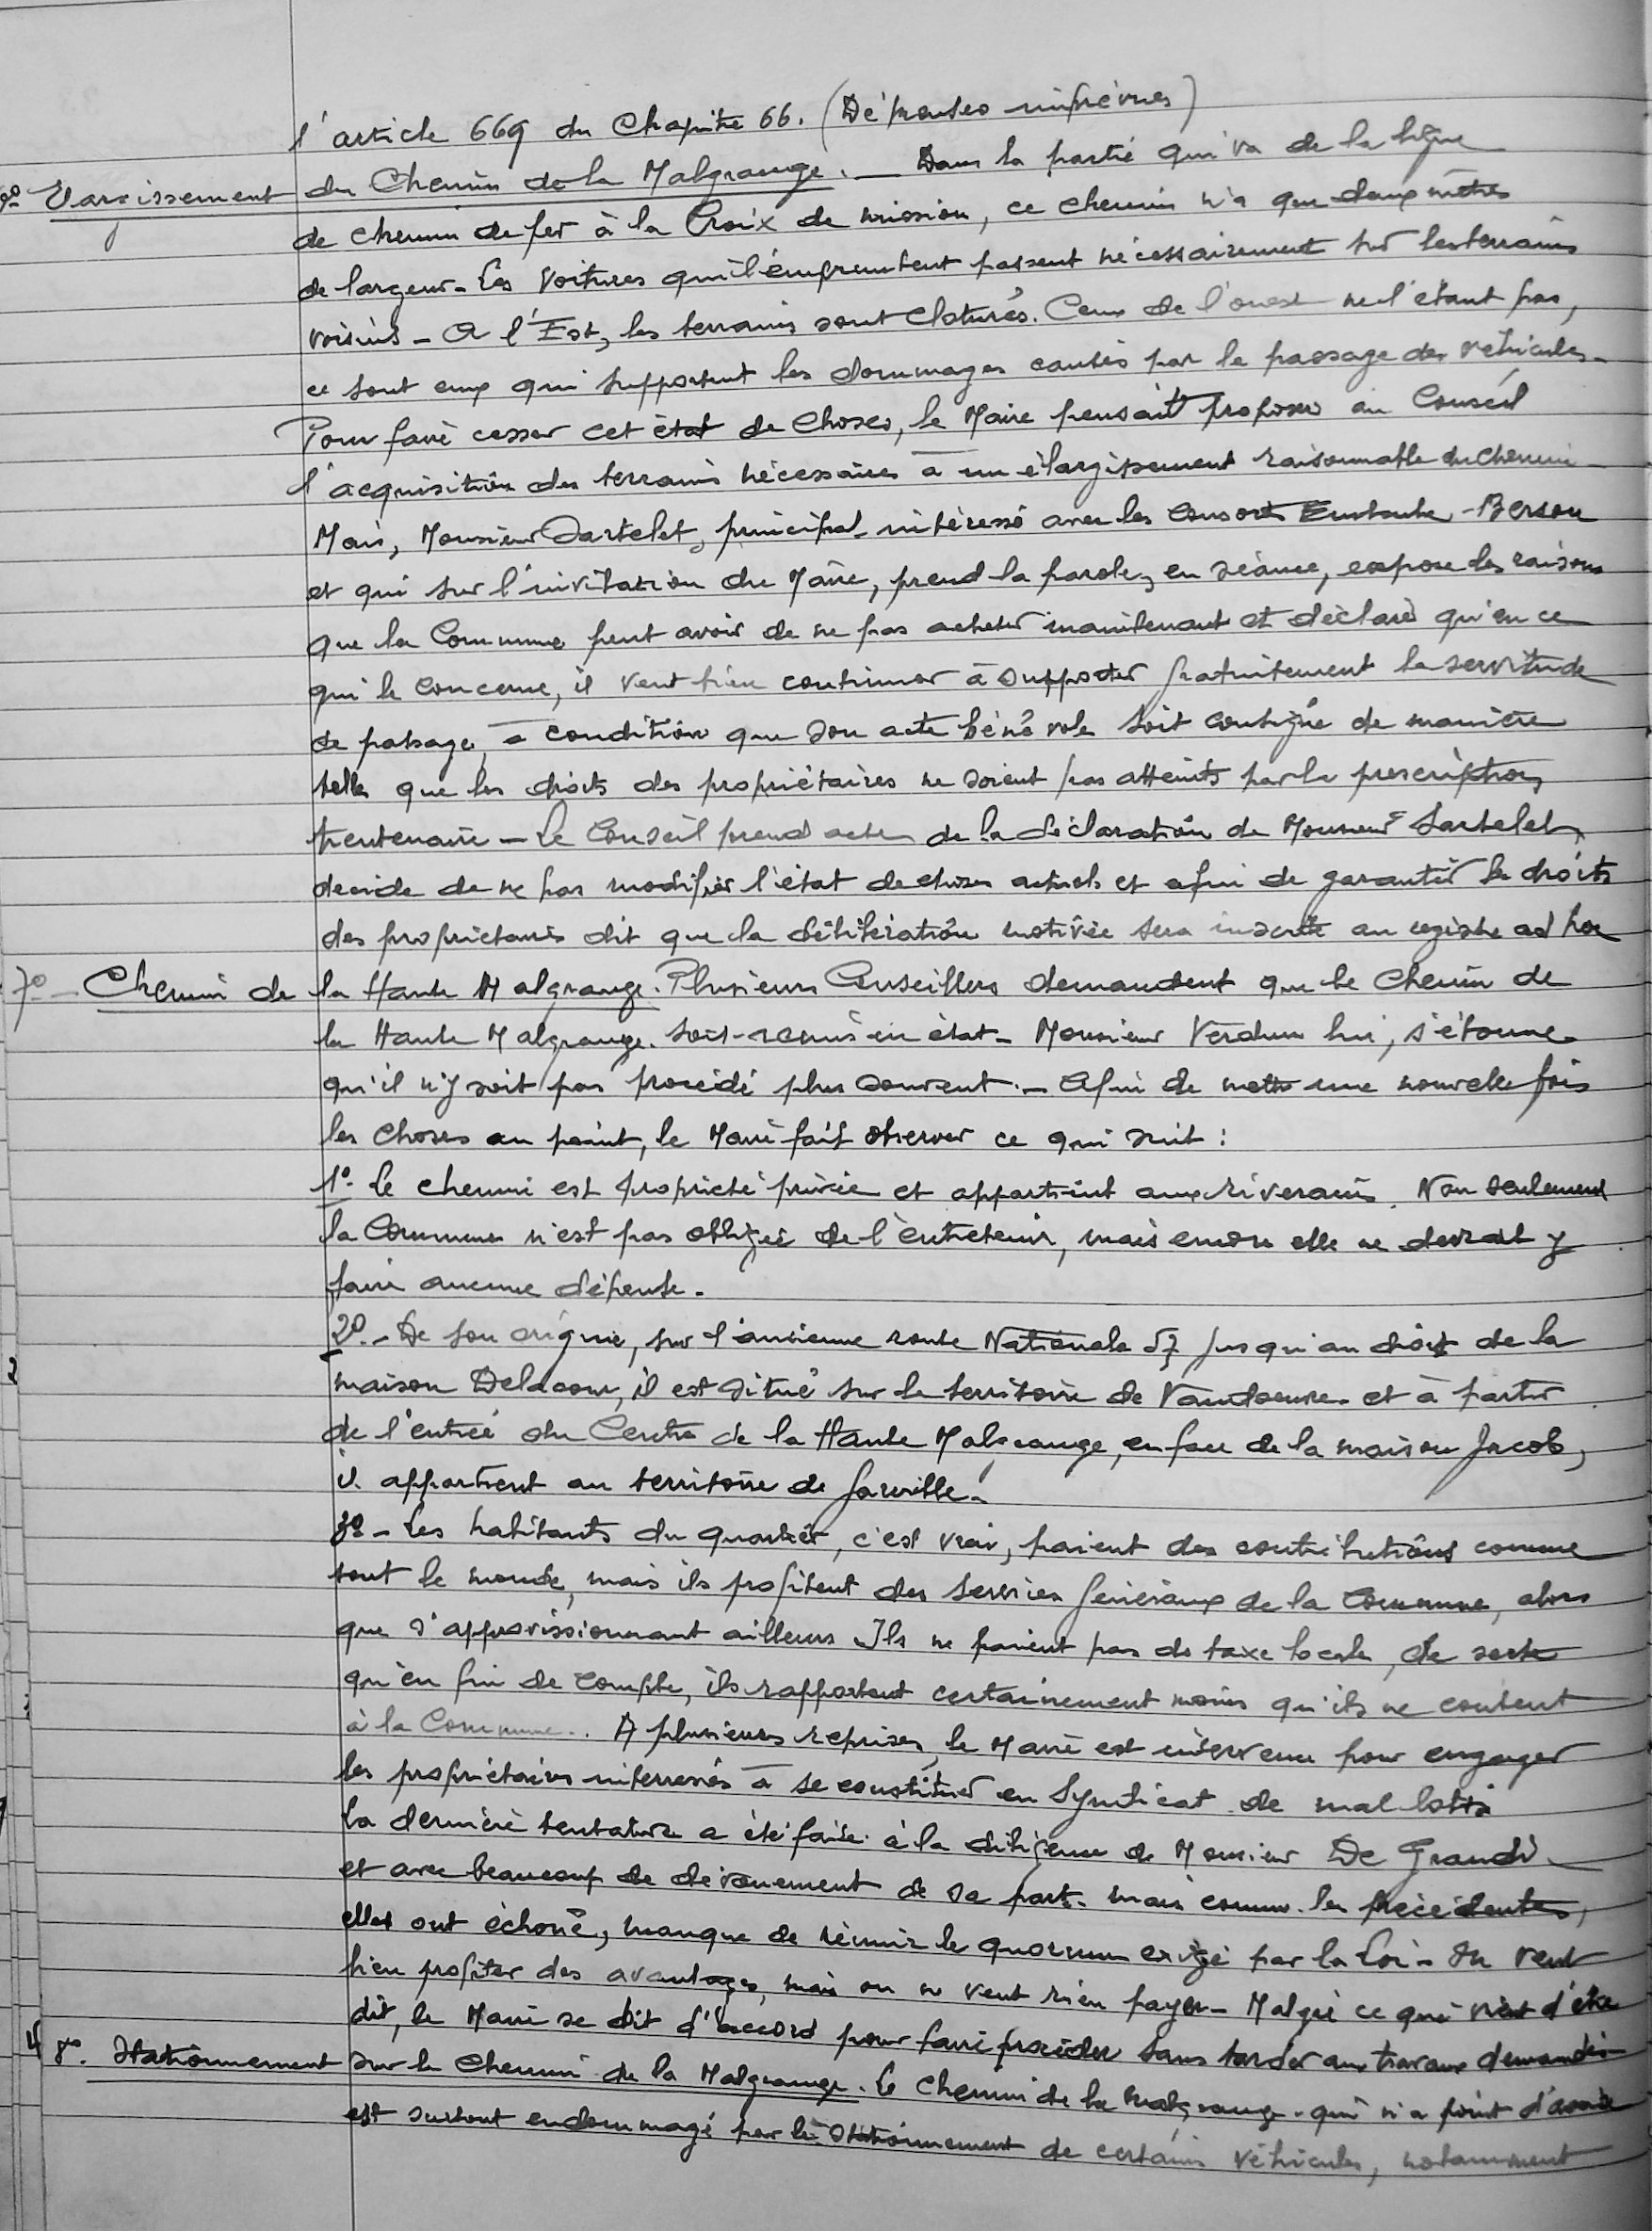 l'article 669 du Chapitre 66. (Dépenses imprévues)
6º Elargissement du Chemin de la Malgrange. — Dans la partie qui va de la ligne
de chemin de fer à la Croix de mission, ce chemin n'a que deux mètres
de largeur - Les voitures qui l'empruntent passent nécessairement sur les terrains
voisins - A l'Est, les terrains sont cloturés. Ceux de l'ouest ne l'étant pas,
ce sont eux qui supportent les dommages causés par le passage des véhicules -
Pour faire cesser cet état de choses, le Maire pensait proposer au Conseil
l'acquisition des terrains nécessaires à un élargissement raisonnable du chemin -
Mais, Monsieur Dartelet, principal intéressé avec les Consorts - Berson
et qui sur l'invitation du Maire, prend la parole, en séance, expose les raisons
que la Commune peut avoir de ne pas acheter maintenant et déclare qu'en ce
qui le concerne, il veut bien continuer à supporter gratuitement la servitude
de passage, à condition que son acte bénévole soit consigné de manière
telle que les droits des propriétaires ne soient pas atteints par la prescription
trentenaire - Le Conseil prend acte de la déclaration de Monsieur Dartelet,
décide de ne pas modifier l'état de choses actuels et afin de garantir les droits
des propriétaires dit que la délibération motivée sera inscrite au registre ad hoc
7º - Chemin de la Haute Malgrange. Plusieurs Conseillers demandent que le Chemin de
la Haute Malgrange. soit remis en état - Monsieur Verdun lui, s'étonne
qu'il n'y soit pas procédé plus souvent. - Afin de mettre une nouvelle fois
les choses au point, le Maire fait observer ce qui suit :
1º - Le chemin est propriété privée et appartient aux riverains. Non seulement
la Commune n'est pas obligée de l'entretenir, mais encore elle ne devrait y
faire aucune dépense -
2º. - De son origine, sur l'ancienne route Nationale 57 jusqu'au droit de la
maison Delacour, il est situé sur le territoire de Vandoeuvre et à partir
de l'entrée du Centre de la Haute Malgrange, en face de la maison Jacob,
il appartient au territoire de Jarville -
3º - Les habitants du quartier, c'est vrai, paient des contributions comme
tout le monde, mais ils profitent des services généraux de la Commune, alors
que s'approvisionnant ailleurs Ils ne paient pas de taxe locale, de sorte
qu'en fin de compte, ils rapportent certainement moins qu'ils ne coutent
à la Commune.. A plusieurs reprises, le Maire est intervenu pour engager
les propriétaires interressés à se constituer en Syndicat de mal lotis
La dernière tentative a été faite à la diligence de Monsieur De Grandi -
et avec beaucoup de dévouement de sa part - mais comme les précédentes,
elles ont échoué, manque de réunir le quorum exigé par la Loi - On veut
bien profiter des avantages, mais on ne veut rien payer - Malgré ce qui vient d'être
dit, le Maire se dit d'accord pour faire procéder sans tarder aux travaux demandés -
8º. Stationnement sur le Chemin de la Malgrange. Le chemin de la Malgrange - qui n'a point
est surtout endommagé par le stationnement de certains véhicules, notamment